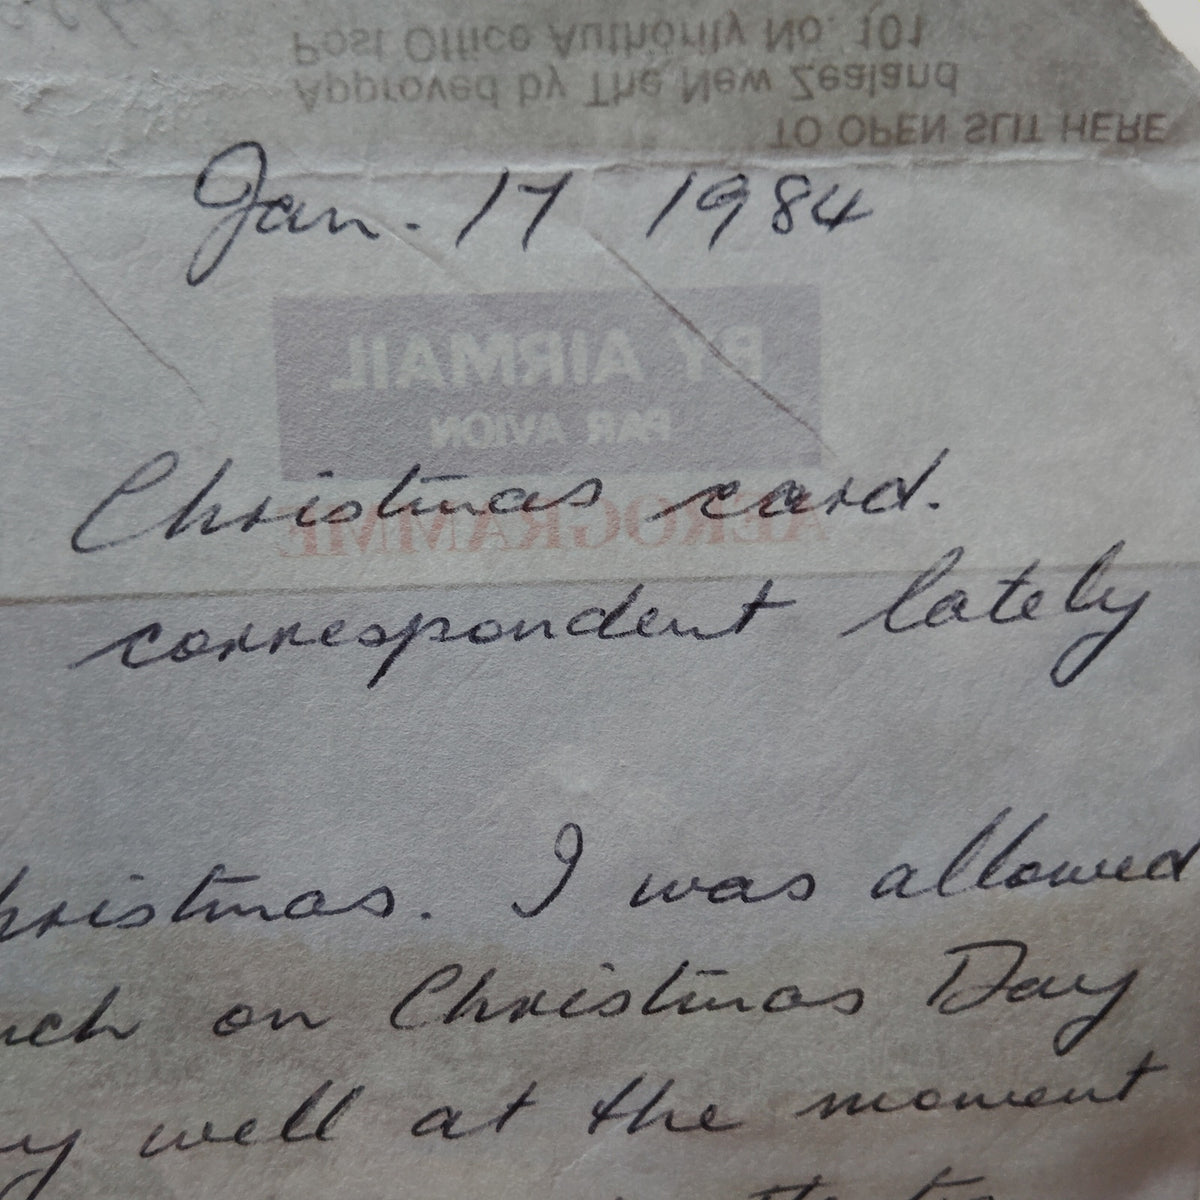 Post Office Authority No. 101
Approved by The New Zealand
TO OPEN SLIT HERE
Jan. 17 1984
BY AIRMAIL
PAR AVION
Christmas card.
AEROGRAMME
correspondent lately
hristmas. I was allowed
nch on Christmas Day
y well at the moment